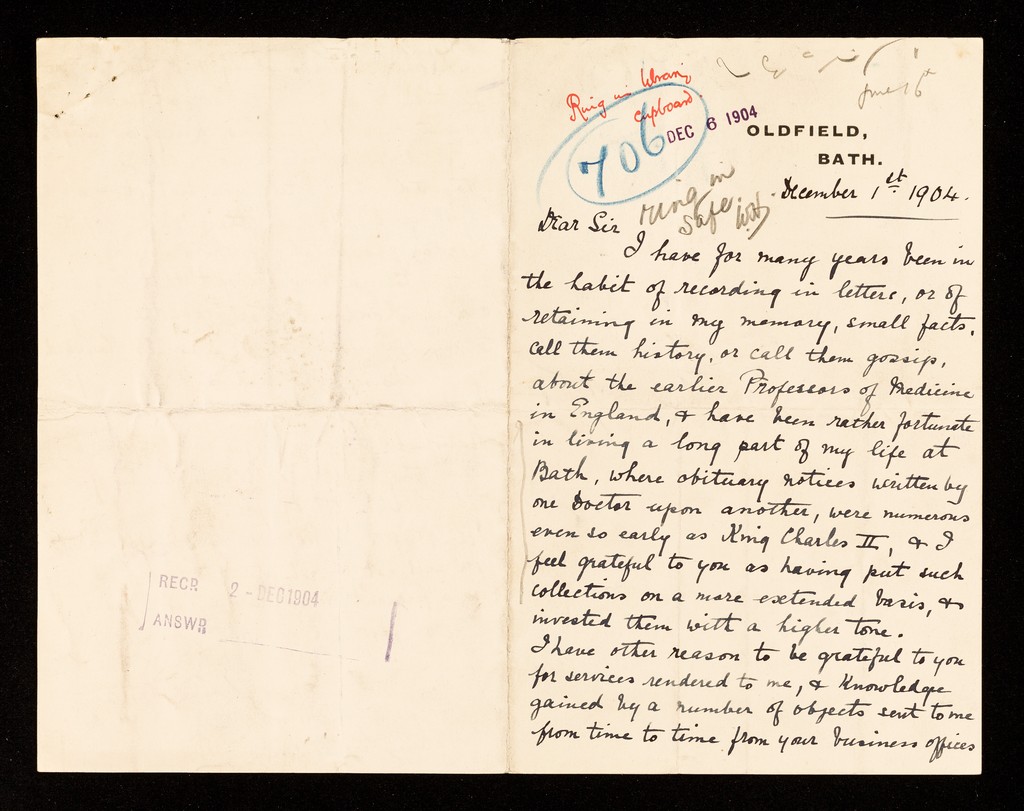 RECD. 2 - DEC 1904
ANSWD
June 16th
Ring in library
cupboard
706
DEC 6 1904
OLDFIELD,
BATH.
ring in
safe.
December 1st 1904.
Dear Sir
I have for many years been in
the habit of recording in letters, or of
retaining in my memory, small facts,
call them history, or call them gossip,
about the earlier Professors of Medicine
in England, & have been rather fortunate
in living a long part of my life at
Bath, where obituary notices written by
one Doctor upon another, were numerous
even so early as King Charles II, & I
feel grateful to you as having put such
collections on a more extended basis, &
invested them with a higher tone.
I have other reason to be grateful to you
for services rendered to me, & knowledge
gained by a number of objects sent to me
from time to time from your business offices